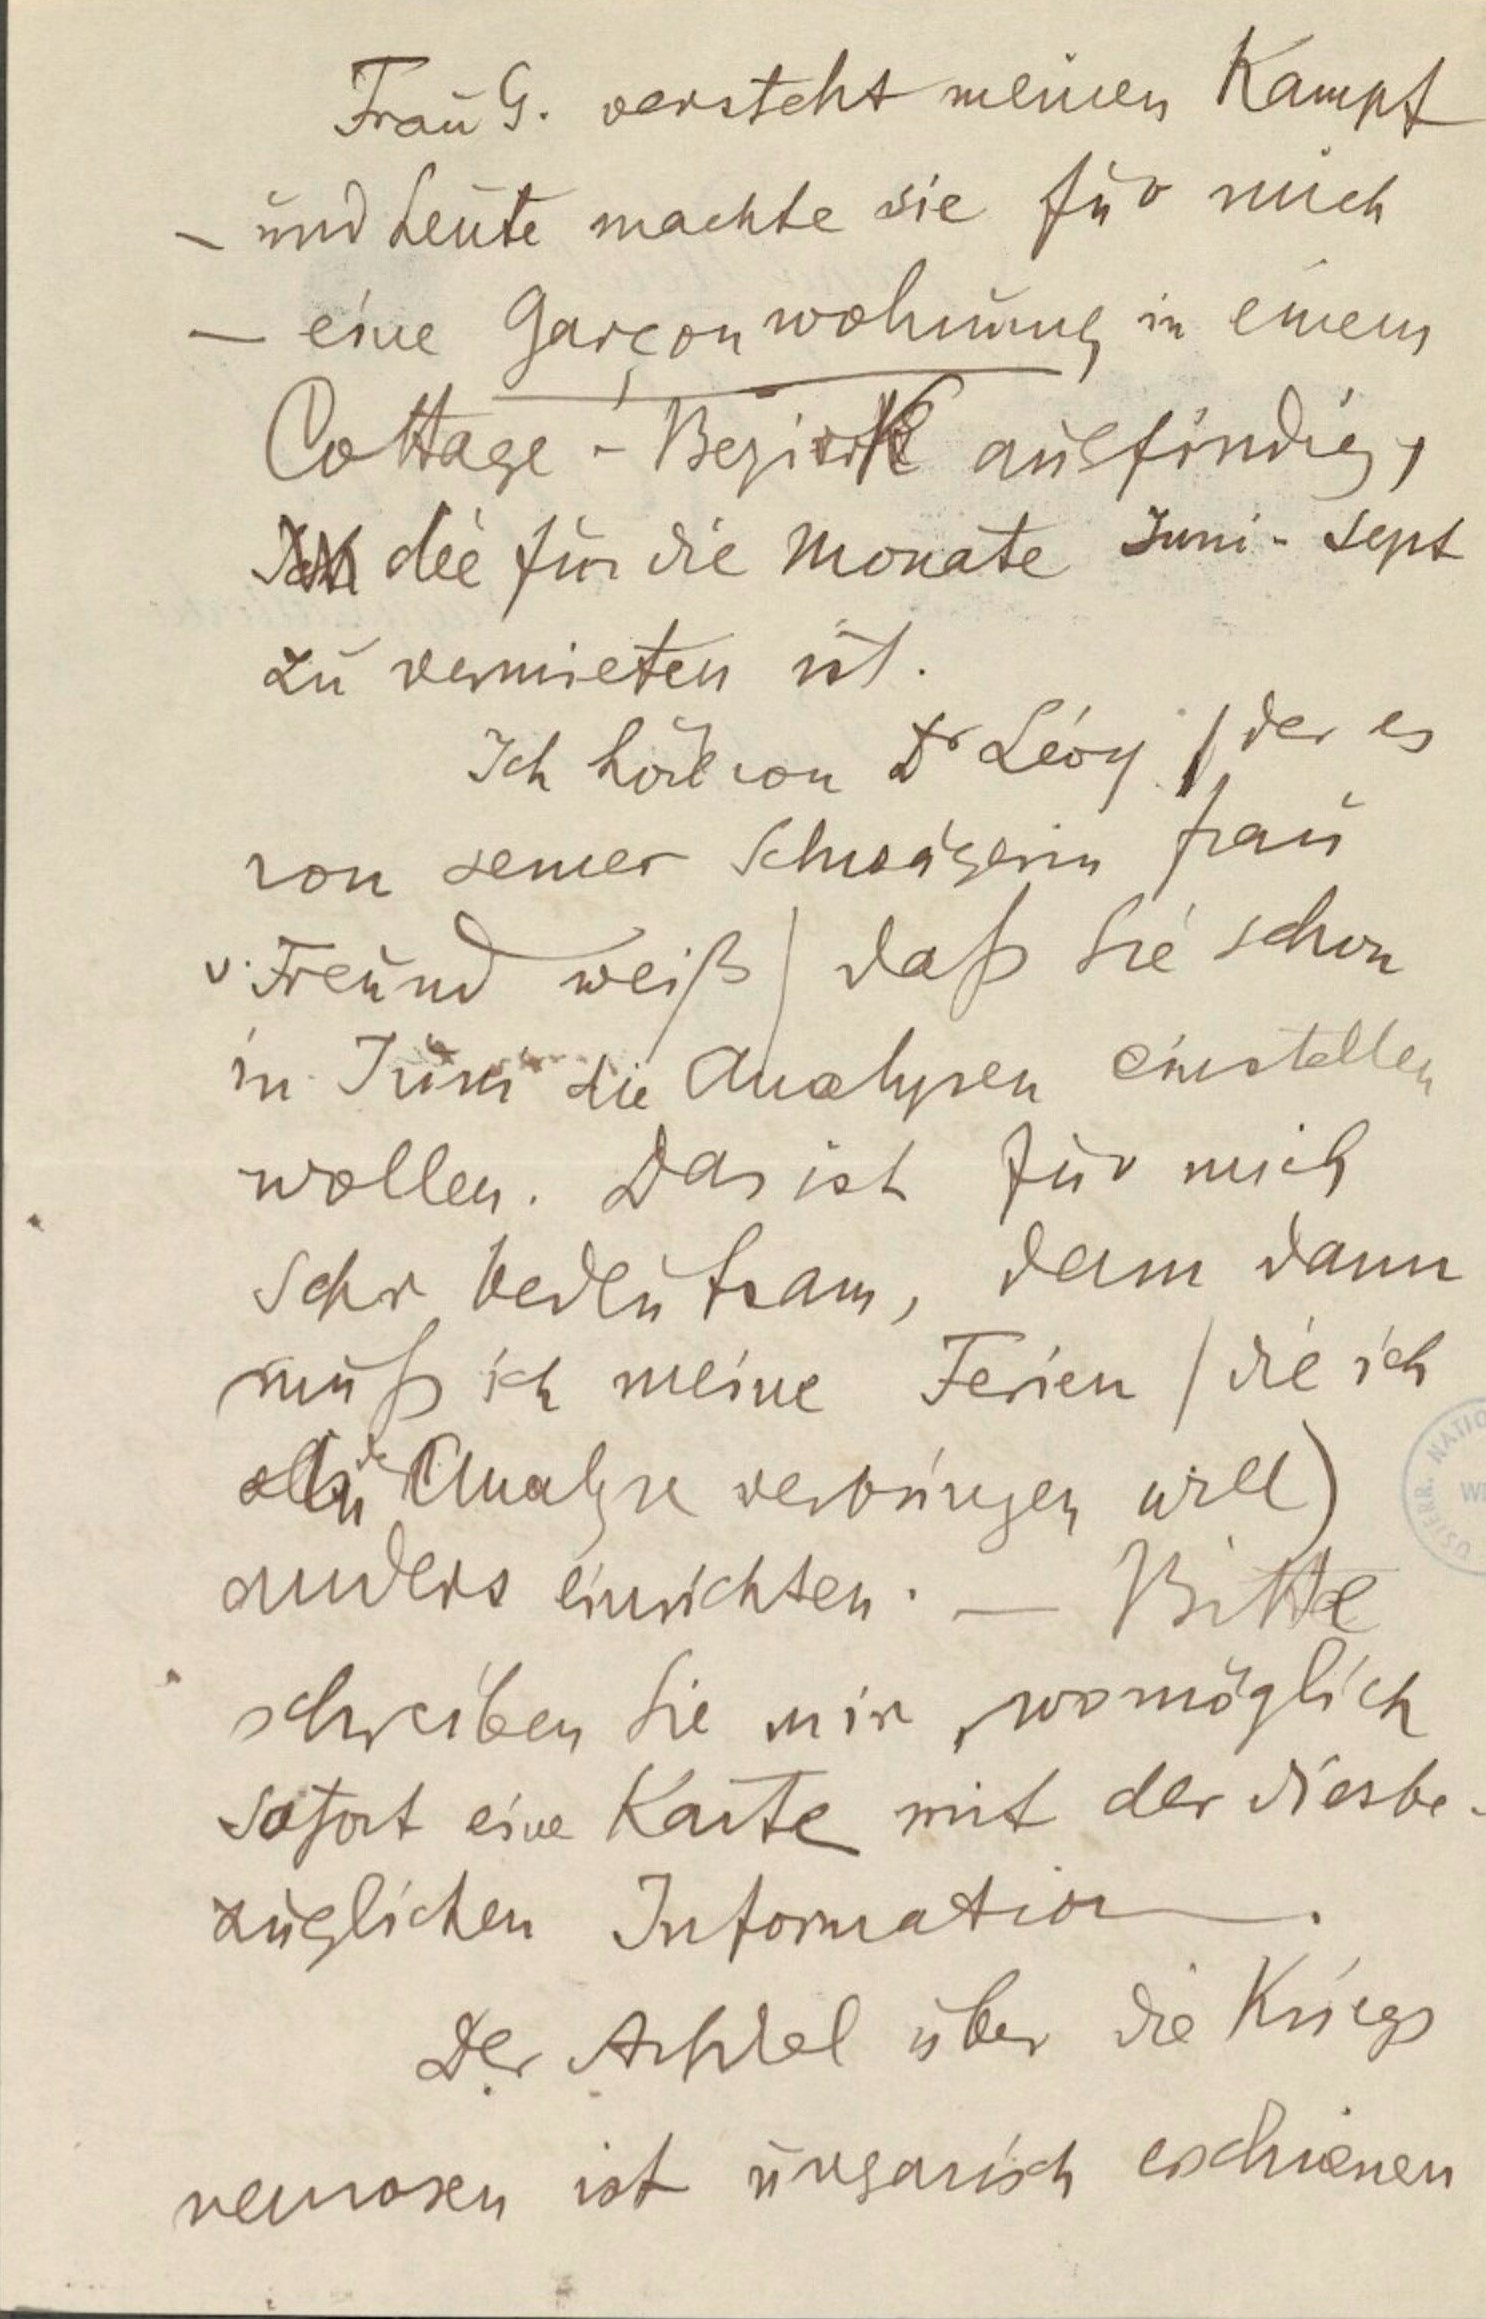 Frau G. versteht meinen Kampf
– und heute machte sie für mich
– eine Garçonwohnung in einem
Cottage-Bezirk ausfindig,
die für die Monate Juni - Sept
zu vermieten ist.
Ich höre von Dr Lévy / der es
von seiner Schwägerin Frau
v. Freund weiß / daß Sie schon
in Juni die Analysen einstellen
wollen. Das ist für mich
sehr bedeutsam, denn dann
muß ich meine Ferien / die ich
in Analyse verbringen will)
anders einrichten. — Bitte
schreiben Sie mir womöglich
sofort eine Karte mit der diesbe-
züglichen Information.
Der Artikel über die Kriegs
neurosen ist ungarisch erschienen
ÖSTERR. NATIO
WI